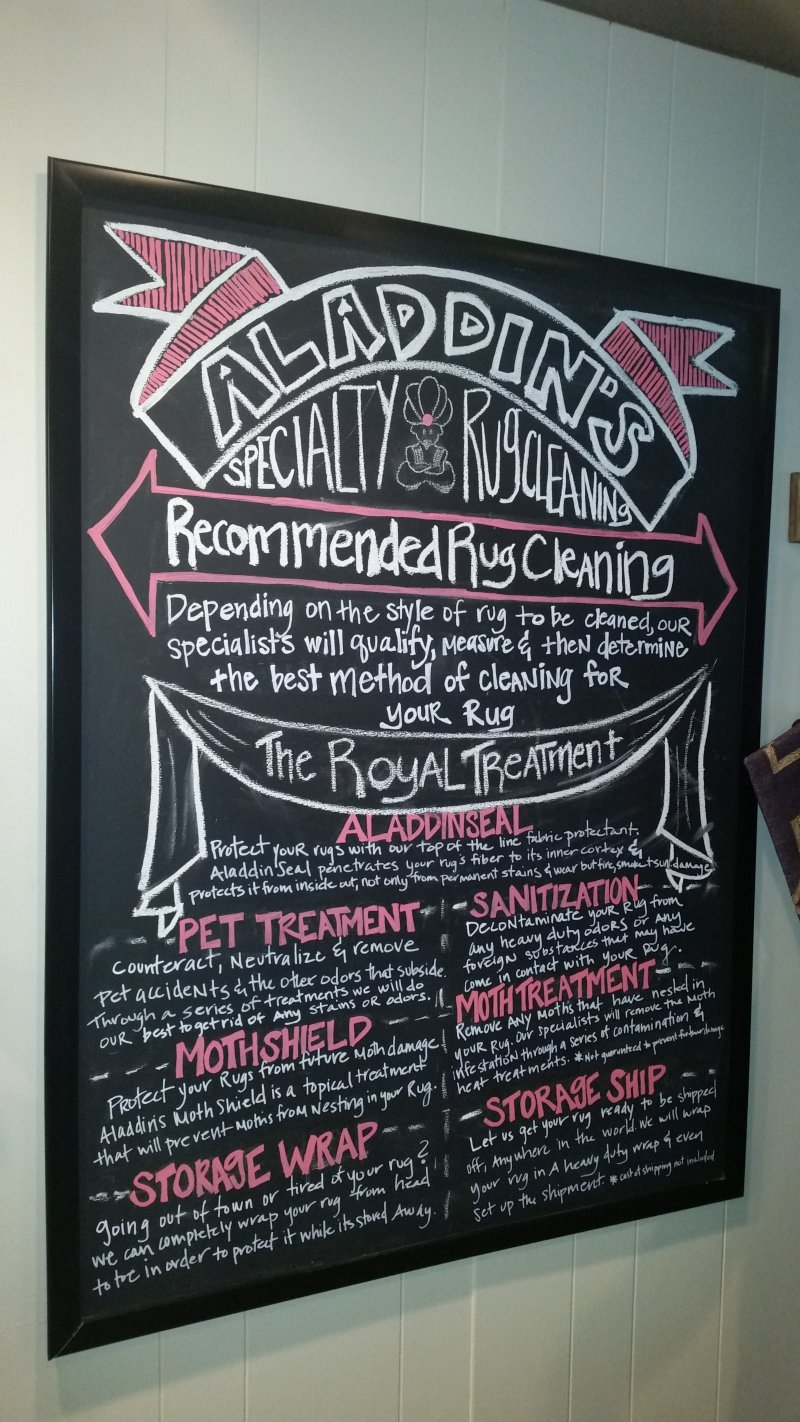 ALADDIN'S
SPECIALTY RugCLEANINg
Recommended Rug CLEANiNg
Depending on the style of rug to be cleaned, ouR
specialists will qualify, MeasuRe & theN determine
the best method of cleaNiNg foR
youR Rug
The ROYAL TREATMeNt
ALADDINSEAL
Protect youR rugs with our top of the line fabric protectant.
Aladdin Seal penetrates your rugs fiber to its inner cortex &
protects it from inside out, not only from permanent stains & wear but fire, smoke & sun damage
PET TREATMENT
Counteract, Neutralize & remove
Pet accidents & the other odors that subside.
Through a series of treatments we will do
ouR best to get rid of any stains or odors.
SANITIZATION
Decontaminate youR Rug from
any heavy duty odors or Any
foreign substances that may have
come in contact with your Rug.
MOTH TREATMENT
Remove ANY Moths that have nested in
youR Rug. Our specialists will remove the Moth
infestation through a series of contamination &
heat treatments. *Not guaranteed to prevent further damage
MOTHSHIELD
Protect your Rugs from future Moth damage
Aladdins Moth Shield is a topical treatment
that will prevent Moths from Nesting in your Rug.
STORAGE SHIP
Let us get your rug ready to be shipped
off, Anywhere in the world. We will wrap
your rug in A heavy duty wrap & even
set up the shipment. *cost of shipping not included
STORAGE WRAP
going out of town or tired of your rug?
we can completely wrap your rug from head
to toe in order to protect it while its stored Away.